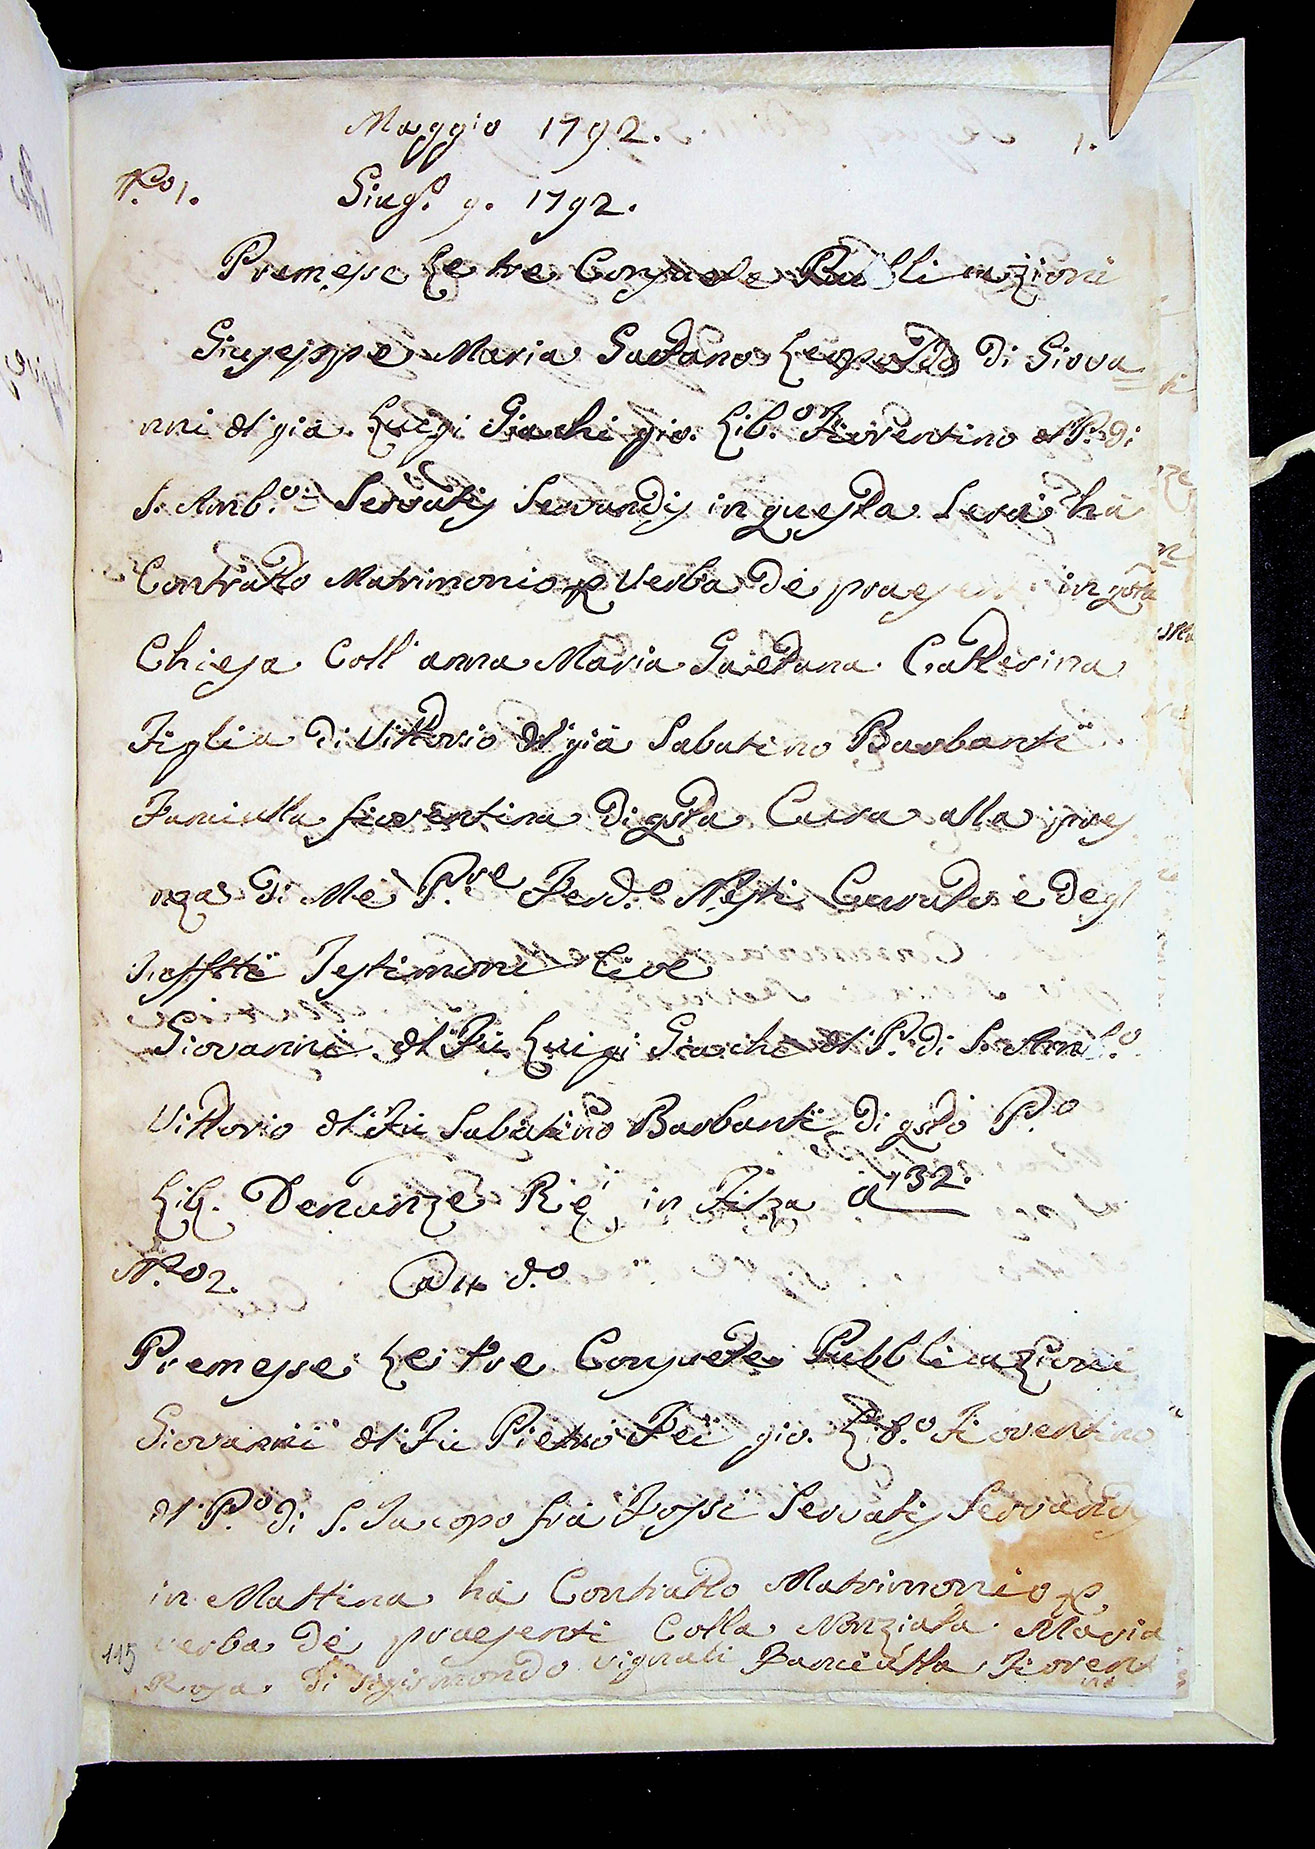 Maggio 1792.
1.
N.º 1. Giug.º 9. 1792.
Premesse Le tre Consuete Pubblicazioni
Giuseppe Maria Gaetano Leopoldo di Giova=
nni dl già Luigi Giachi gio. Lib.º Fiorentino dl P.º di
S. Amb.º: Servatis Servandis in questa Sera hà
Contratto Matrimonio p Verba dè praesen in qsta
Chiesa Coll' anna Maria Gaetana Catterina
Figlia di Vittorio dl già Sabatino Barbanti
Fanciulla fiorentina di qsta Cura alla pres
nza di Me P.re Ferd.º Nesti Curato è degl
Testimoni Cioè
Giovanni dl Fù Luigi Giachi dl P.º di S. Amb.º
Vittorio dl Fù Sabatino Barbanti di qsto P.º
Lib. Denunze in Filza à 132.
N.º 2. A 11 d.º
Premesse Le tre Consuete Pubblicazioni
Giovanni dl Fù Pietro Fei gio. Lib.º Fiorentino
dl P.º di S. Jacopo frà Fossi Servatis Servandis
in Mattina hà Contratto Matrimonio p
verba dè praesenti Colla Nonziata Maria
Rosa di Sigismondo Vignali Fanciulla Fiorent
ina
115